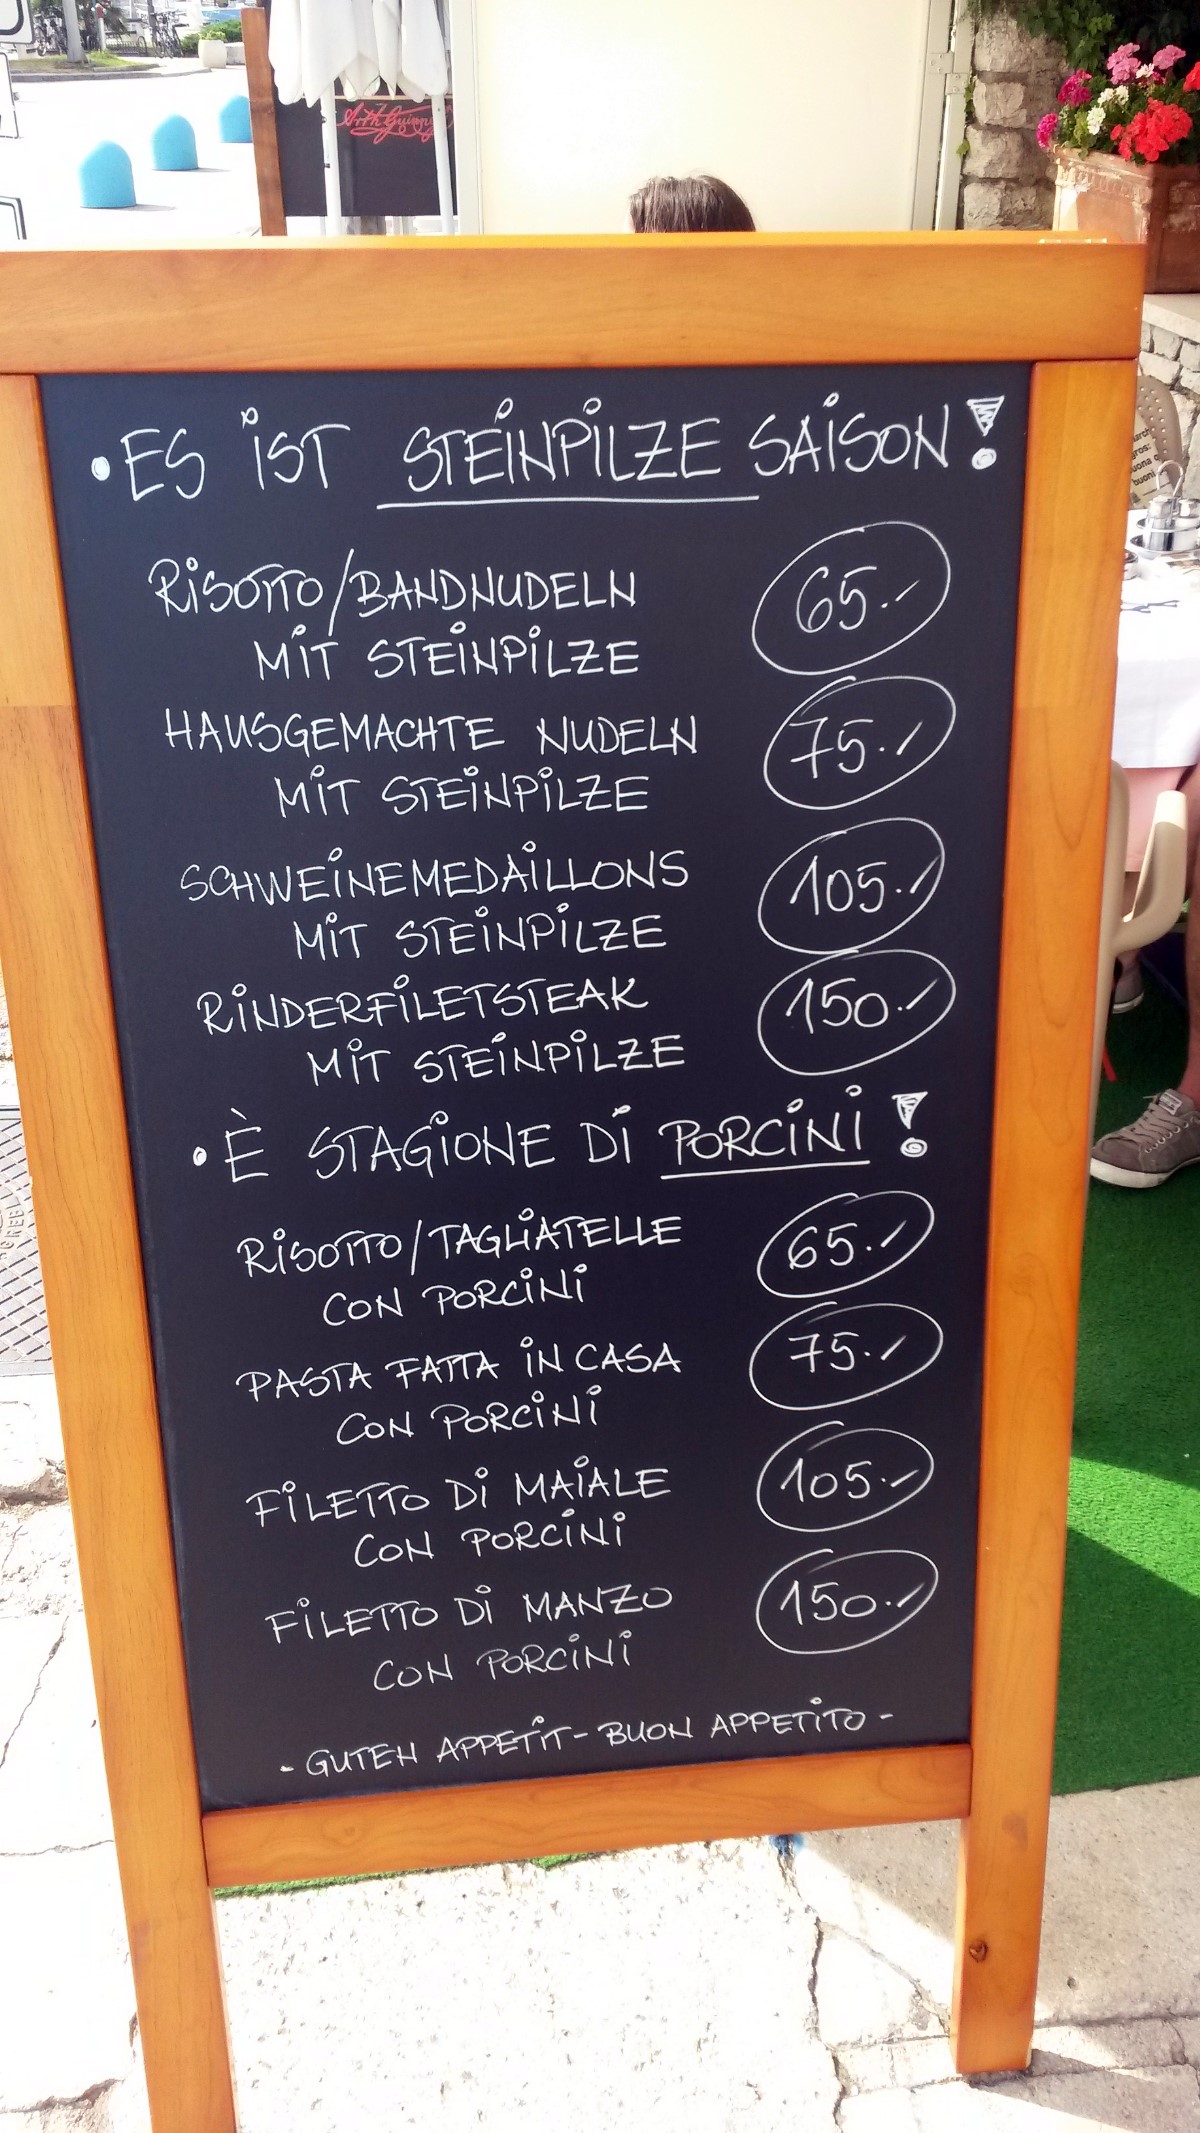 Arth Guinness
• ES IST STEINPILZE SAISON!
RISOTTO/BANDNUDELN 65.-
MIT STEINPILZE
HAUSGEMACHTE NUDELN 75.-
MIT STEINPILZE
SCHWEINEMEDAILLONS 105.-
MIT STEINPILZE
RINDERFILETSTEAK 150.-
MIT STEINPILZE
• È STAGIONE DI PORCINI!
RISOTTO/TAGLIATELLE 65.-
CON PORCINI
PASTA FATTA IN CASA 75.-
CON PORCINI
FILETTO DI MAIALE 105.-
CON PORCINI
FILETTO DI MANZO 150.-
CON PORCINI
- GUTEN APPETIT - BUON APPETITO -